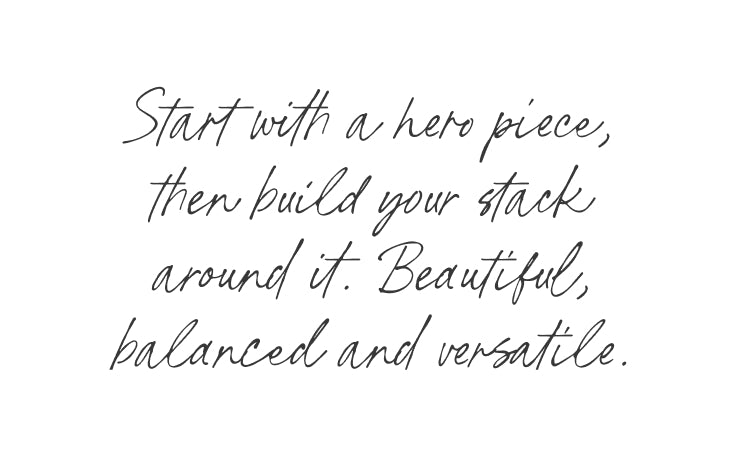 Start with a hero piece,
then build your stack
around it. Beautiful,
balanced and versatile.